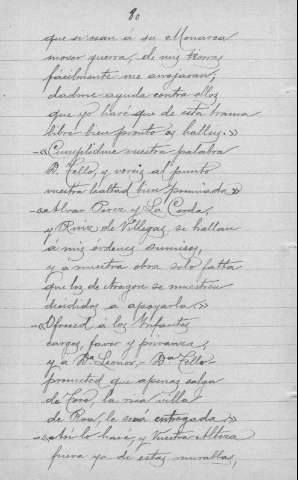 80
que si sean á su Monarca
mover guerra, de mis tierras
fácilmente me arrojaran;
dadme ayuda contra ellos
que yo haré que de esta trama
libre bien pronto os halleis.»
—«Cumplidme vuestra palabra
D. Tello, y vereis al punto
vuestra lealtud bien premiada»
—«Alvar Perez y La Cerda,
y Ruiz de Villegas, se hallan
á mis órdenes sumisos,
y á nuestra obra solo falta
que los de Aragon se muestren
decididos á apoyarla.»
—«Ofreced á los Infantes
cargos, favor y privanza,
y á Dª Leonor,— Dn Tello—
prometed que apenas salga
de Toro, la mia villa
de Roa, le será entregada.»
—«Así lo haré, y Vuestra Alteza
fuera ya de estas murallas,